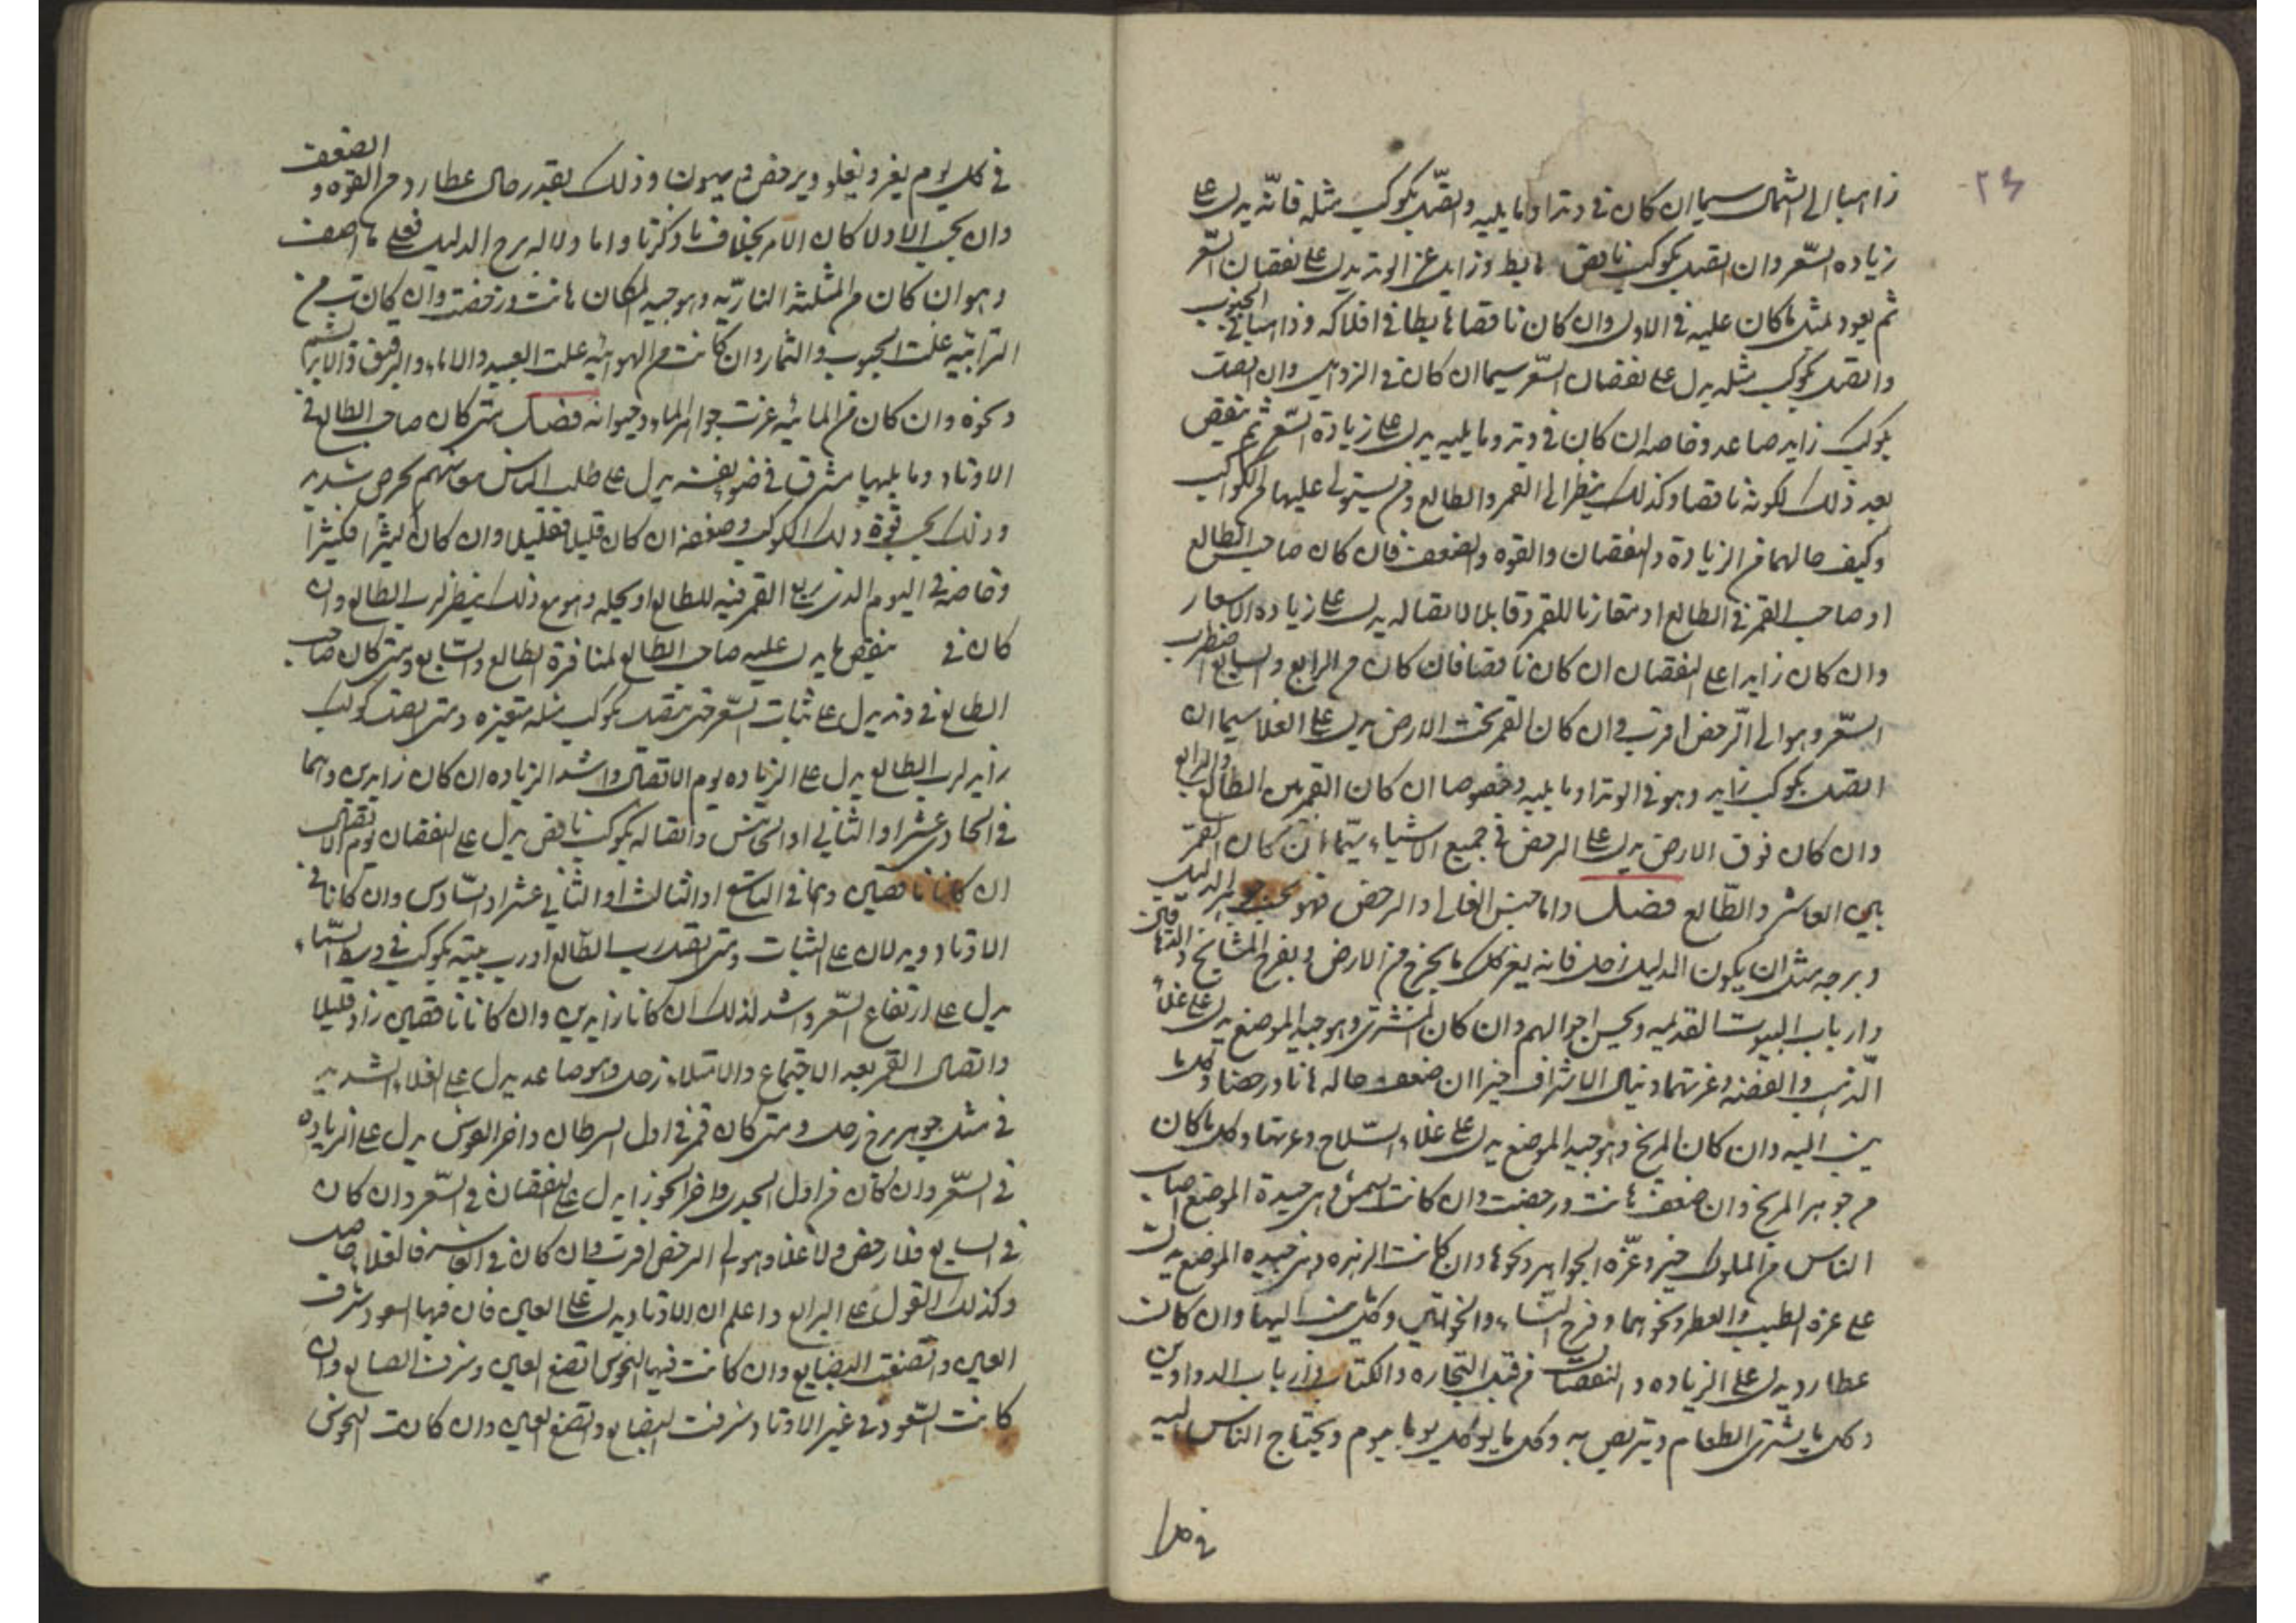 ٢٤
ذاهبا الى الشمال سيما ان كان في وتد او ما يليه واتصل بكوكب مثله فانّه يدل على
زياده السّعر وان اتصل بكوكب ناقص هابط وزايل عن الوتد يدل على نقصان السّعر
ثم يعود لمثل ما كان عليه في الاول وان كان ناقصا هابطا في افلاكه وذاهبا في الجنوب
واتصل بكوكب مثله يدل على نقصان السّعر سيما ان كان في الزوايل وان اتصل
بكوكب زايد صاعد وخاصه ان كان في وتد وما يليه يدل على زيادة السّعر ثم ينقص
بعد ذلك لكونه ناقصا وكذلك ينظر الى القمر والطالع ومن يستولى عليهما من الكواكب
وكيف حالهما من الزيادة والنقصان والقوه والضعف فان كان صاحب الطالع
او صاحب القمر في الطالع او مقارنا للقمر وقابلا لاتصاله يدل على زياده الاسعار
وان كان زايدا على النقصان ان كان ناقصا فان كان في الرابع والسابع اضطرب
السّعر وهو الى الرخص اقرب وان كان القمر تحت الارض يدل على الغلا سيما ان
اتصل بكوكب زايد وهو في الوتد او ما يليه وخصوصا ان كان القمر بين الطالع والرابع
وان كان فوق الارض يدل على الرخص في جميع الاشياء سيّما ان كان القمر
بين العاشر والطّالع فصل واما جنس الغالى والرخص فهو بحسب جوهر الدليل
وبرجه مثل ان يكون الدليل زحل فانه يعز كل ما يخرج من الارض ويفرح المشايخ والدهاقين
وارباب البيوت القديمه ويحسن احوالهم وان كان المشترى وهو جيد الموضع يدل على غلاء
الذهب والفضه وعزتهما وينال الاشراف خيرا وان ضعف حاله هانا ورخصا وكل ما
ينسب اليه وان كان المريخ وهو جيد الموضع يدل على غلاء السّلاح وعزتها وكل ما كان
من جوهر المريخ وان ضعف هانت ورخصت وان كانت الشمس وهى جيدة الموضع اصاب
الناس من الملوك خير وعزّه الجواهر ونحوها وان كانت الزهره وهى جيده الموضع يدل
على عزه الطيب والعطر ونحوهما وفرح النساء والخواتين وكل ما ينسب اليها وان كان
عطارد يدل على الزياده والنقصان من قبل التجاره والكتاب وارباب الدواوين
وكل ما يشترى الطعام ويتربص به وكل ما يوكل يوما بيوم ويحتاج الناس اليه
في كل
في كل يوم يعز ويغلو ويرخص ويهون وذلك بقدر حال عطارد من القوه والضعف
وان يحب الاول كان الامر بخلاف ما ذكرنا واما دلاله برج الدليل فعلى ما اصف
وهو ان كان من المثلثه الناريّه وهو جيد المكان هانت ورخصت وان كانت من
الترابيّه غلت الحبوب والثمار وان كانت من الهوائيّه غلت العبيد والاماء والرقيق والابريشم
ونحوه وان كان من المائيّه عزت جواهر الماء وحيوانه فصل متى كان صاحب الطالع في
الاوتاد وما يليها مشرق في ضوء نفسه يدل على طلب الناس معاشهم بحرص شديد
وذلك بحسب قوّة ذلك الكوكب وضعفه ان كان قليلا فقليل وان كان كثيرا فكثيرا
وخاصه في اليوم الذى يربع القمر فيه للطالع او يحله وهو مع ذلك ينظر لرب الطالع وان
كان في ينقص ما يدل عليه صاحب الطالع لمنافرة الطالع والسّابع ومتى كان صاحب
الطالع في وتد يدل على ثبات السّعر حتى يتصل بكوكب مثله متغيره ومتى اتصل كوكب
زايد لرب الطالع يدل على الزياده يوم الاتصال واشد الزياده ان كان زايدين وهما
في الحاديعشر او الثاني او الخامس واتصاله بكوكب ناقص يدل على النقصان يوم الاتصال
ان كانا ناقصين وهما في التاسع او الثالث او الثاني عشر او السّادس وان كانا في
الاوتاد ويدلان على الثبات ومتى اتصل رب الطّالع او رب بيته بكوكب في وسط السّماء
يدل على ارتفاع السّعر واشد لذلك ان كانا زايدين وان كانا ناقصين زاد قليلا
واتصال القمر بعد الاجتماع والامتلاء بزحل وهو صاعد يدل على الغلاء الشديد
في مثل جوهر برج زحل ومتى كان قمر في اول السرطان واخر القوس يدل على الزياده
في السّعر وان كان من اول الجدى واخر الجوزا يدل على النقصان في السّعر وان كان
في السابع فلا رخص ولا غلا وهو الى الرخص اقرب وان كان في العاشر فالغلا حاصل
وكذلك القول على الرابع واعلم ان الاوتاد يدل على العين فان فيها السعود شرف
العين واتضعت البضايع وان كانت فيها النحوس اتضع العين وشرفت البضايع وان
كانت السّعود في غير الاوتاد شرفت البضايع واتضع العين وان كانت النحوس